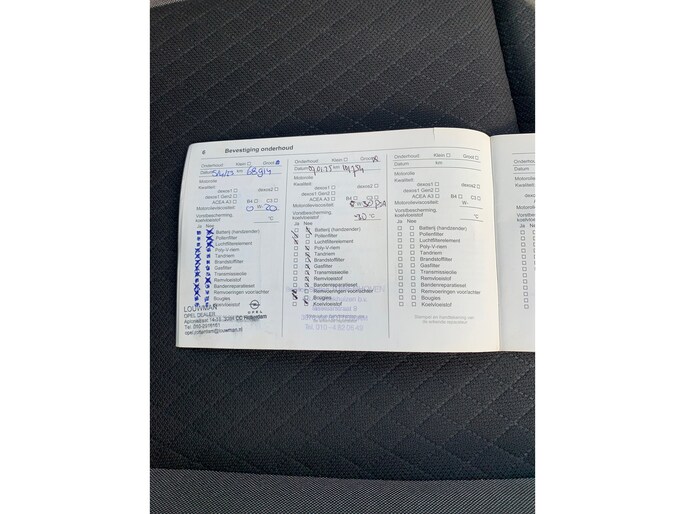 6 Bevestiging onderhoud
Onderhoud: Klein Groot
Datum km 68.914
Motorolie
Kwaliteit:
dexos1 dexos2
dexos1 Gen2
ACEA A3 B4 C3
Motorolieviscositeit: 0 W- 20
Vorstbescherming,
koelvloeistof °C
Ja Nee
Batterij (handzender)
Pollenfilter
Luchtfilterelement
Poly-V-riem
Tandriem
Brandstoffilter
Gasfilter
Transmissieolie
Remvloeistof
Bandenreparatieset
Remvoeringen voor/achter
Bougies
Koelvloeistof
LOUWMAN
OPEL DEALER
OPEL
Onderhoud: Klein Groot
Datum km
Motorolie
Kwaliteit:
dexos1 dexos2
dexos1 Gen2
ACEA A3 B4 C3
Motorolieviscositeit: W-
Vorstbescherming,
koelvloeistof °C
Ja Nee
Batterij (handzender)
Pollenfilter
Luchtfilterelement
Poly-V-riem
Tandriem
Brandstoffilter
Gasfilter
Transmissieolie
Remvloeistof
Bandenreparatieset
Remvoeringen voor/achter
Bougies
Koelvloeistof
Onderhoud: Klein Groot
Datum km
Motorolie
Kwaliteit:
dexos1 dexos2
dexos1 Gen2
ACEA A3 B4 C3
Motorolieviscositeit: W-
Vorstbescherming,
koelvloeistof °C
Ja Nee
Batterij (handzender)
Pollenfilter
Luchtfilterelement
Poly-V-riem
Tandriem
Brandstoffilter
Gasfilter
Transmissieolie
Remvloeistof
Bandenreparatieset
Remvoeringen voor/achter
Bougies
Koelvloeistof